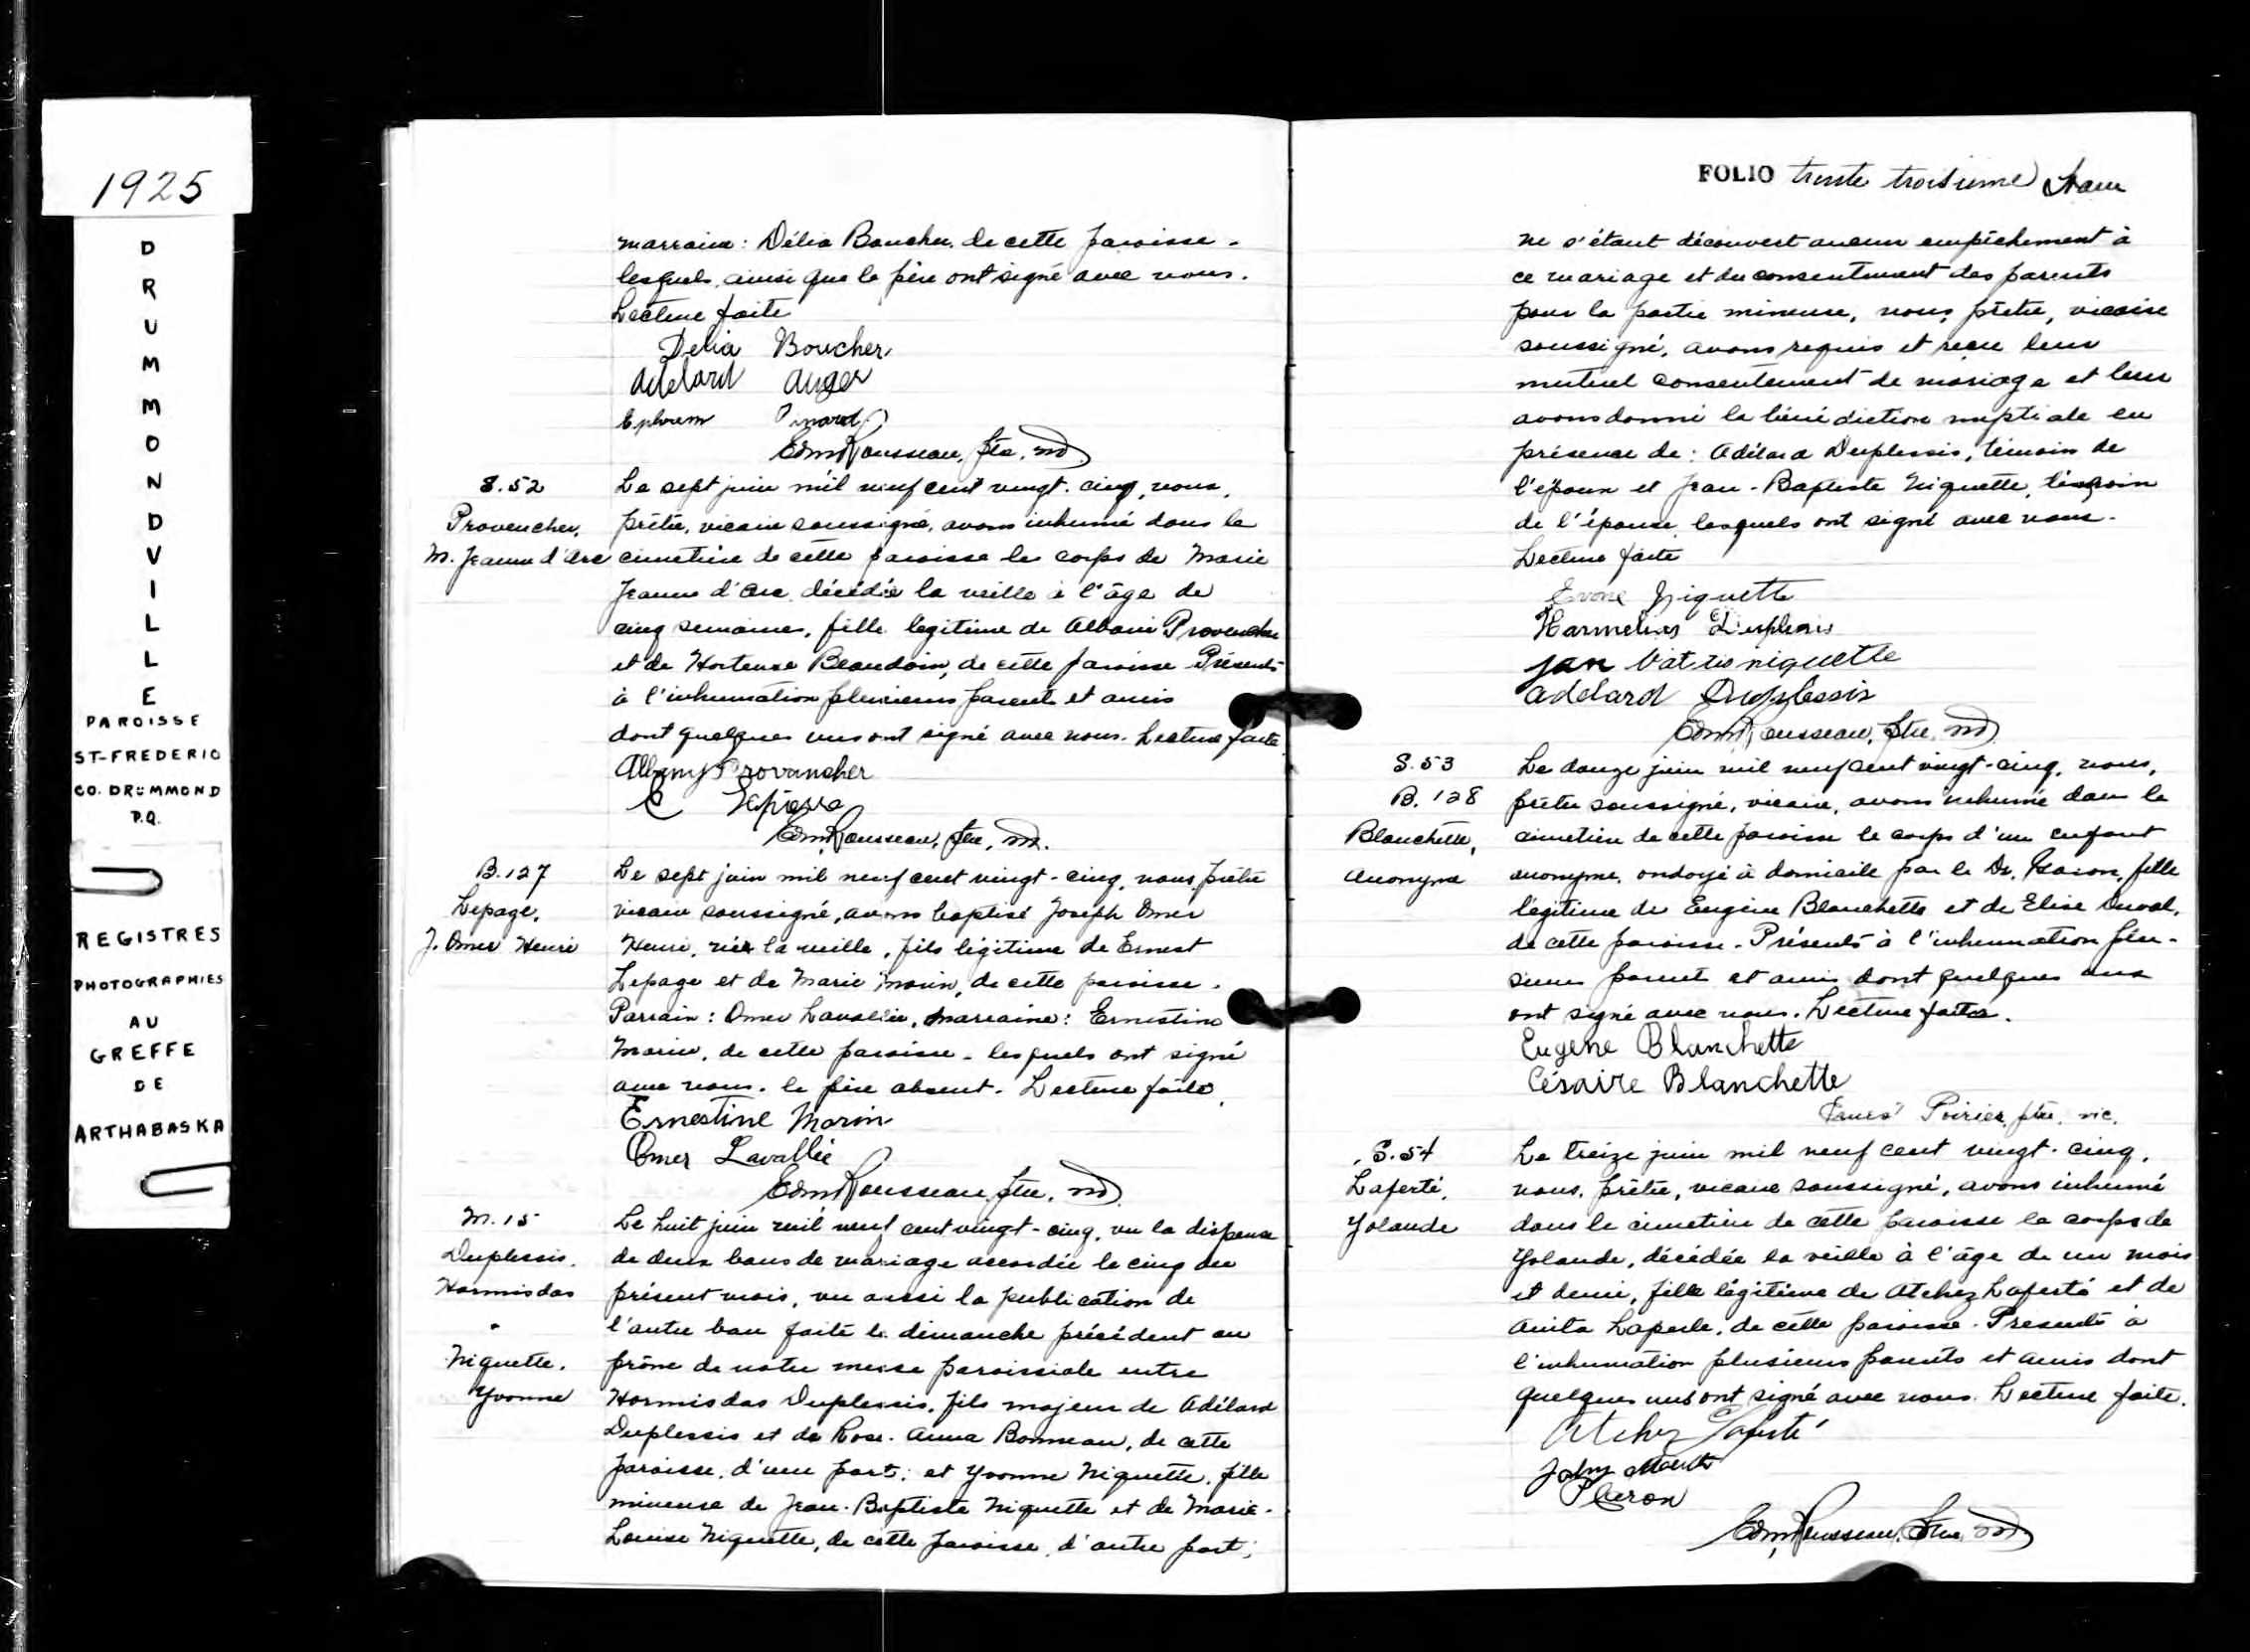 1925
DRUMMONDVILLE
PAROISSE
ST-FREDERIC
CO. DRUMMOND
P.Q.
REGISTRES
PHOTOGRAPHIES
AU
GREFFE
DE
ARTHABASKA
marraine: Délia Boucher, de cette paroisse -
lesquels, ainsi que le père ont signé avec nous.
Lecture faite
Delia Boucher
Adelard Auger
Ephrem Pinard
Edm Rousseau, ptre,
S. 52
Provencher,
M. Jeanne d'Arc
Le sept juin mil neuf cent vingt-cinq, nous,
prêtre, vicaire soussigné, avons inhumé dans le
cimetière de cette paroisse le corps de Marie
Jeanne d'Arc, décédée la veille à l'âge de
cinq semaines, fille légitime de Albani Provencher
et de Hortense Beaudoin, de cette paroisse. Présents
à l'inhumation plusieurs parents et amis
dont quelques uns ont signé avec nous. Lecture faite
Albany Provancher
Edm Rousseau, ptre,
B. 127
Lepage,
J. Omer Henri
Le sept juin mil neuf cent vingt-cinq, nous, prêtre
vicaire soussigné, avons baptisé Joseph Omer
Henri, né la veille, fils légitime de Ernest
Lepage et de Marie Morin, de cette paroisse.
Parrain: Omer Lavallée, marraine: Ernestine
Morin, de cette paroisse - lesquels ont signé
avec nous. le père absent. Lecture faite.
Ernestine Morin
Omer Lavallée
Edm Rousseau, ptre,
M. 15
Duplessis.
Hormisdas
Niquette.
Yvonne
Le huit juin mil neuf cent vingt-cinq, vu la dispense
de deux bans de mariage accordée le cinq du
présent mois, vu aussi la publication de
l'autre ban faite le dimanche précédent au
prône de notre messe paroissiale entre
Hormisdas Duplessis, fils majeur de Adélard
Duplessis et de Rose-Anna Bonneau, de cette
paroisse, d'une part; et Yvonne Niquette, fille
mineure de Jean-Baptiste Niquette et de Marie-
Louise Niquette, de cette paroisse, d'autre part;
FOLIO trente troisième
ne s'étant découvert aucun empêchement à
ce mariage et du consentement des parents
pour la partie mineure, nous, prêtre, vicaire
soussigné, avons requis et reçu leur
mutuel consentement de mariage et leur
avons donné la bénédiction nuptiale en
présence de: Adélard Duplessis, témoin de
l'époux et Jean-Baptiste Niquette, témoin
de l'épouse, lesquels ont signé avec nous.
Lecture faite
Evone Niquette
Harmelias Duplesis
jan batis niquette
adelard Duplessis
Edm Rousseau, ptre,
S. 53
B. 128
Blanchette,
Anonyme
Le douze juin mil neuf cent vingt-cinq, nous,
prêtre soussigné, vicaire, avons inhumé dans le
cimetière de cette paroisse le corps d'un enfant
anonyme, ondoyé à domicile par le Dr. fille
légitime de Eugène Blanchette et de Elise Duval,
de cette paroisse. Présents à l'inhumation plu-
sieurs parents et amis dont quelques uns
ont signé avec nous. Lecture faite.
Eugene Blanchette
Césaire Blanchette
Ernest Poirier, ptre, vic.
S. 54
Laferté,
Yolande
Le treize juin mil neuf cent vingt-cinq,
nous, prêtre, vicaire soussigné, avons inhumé
dans le cimetière de cette paroisse le corps de
Yolande, décédée la veille à l'âge de un mois
et demi, fille légitime de Atchez Laferté et de
Anita de cette paroisse. Présents à
l'inhumation plusieurs parents et amis dont
quelques uns ont signé avec nous. Lecture faite.
Atchez Laferté
Edm Rousseau, ptre,